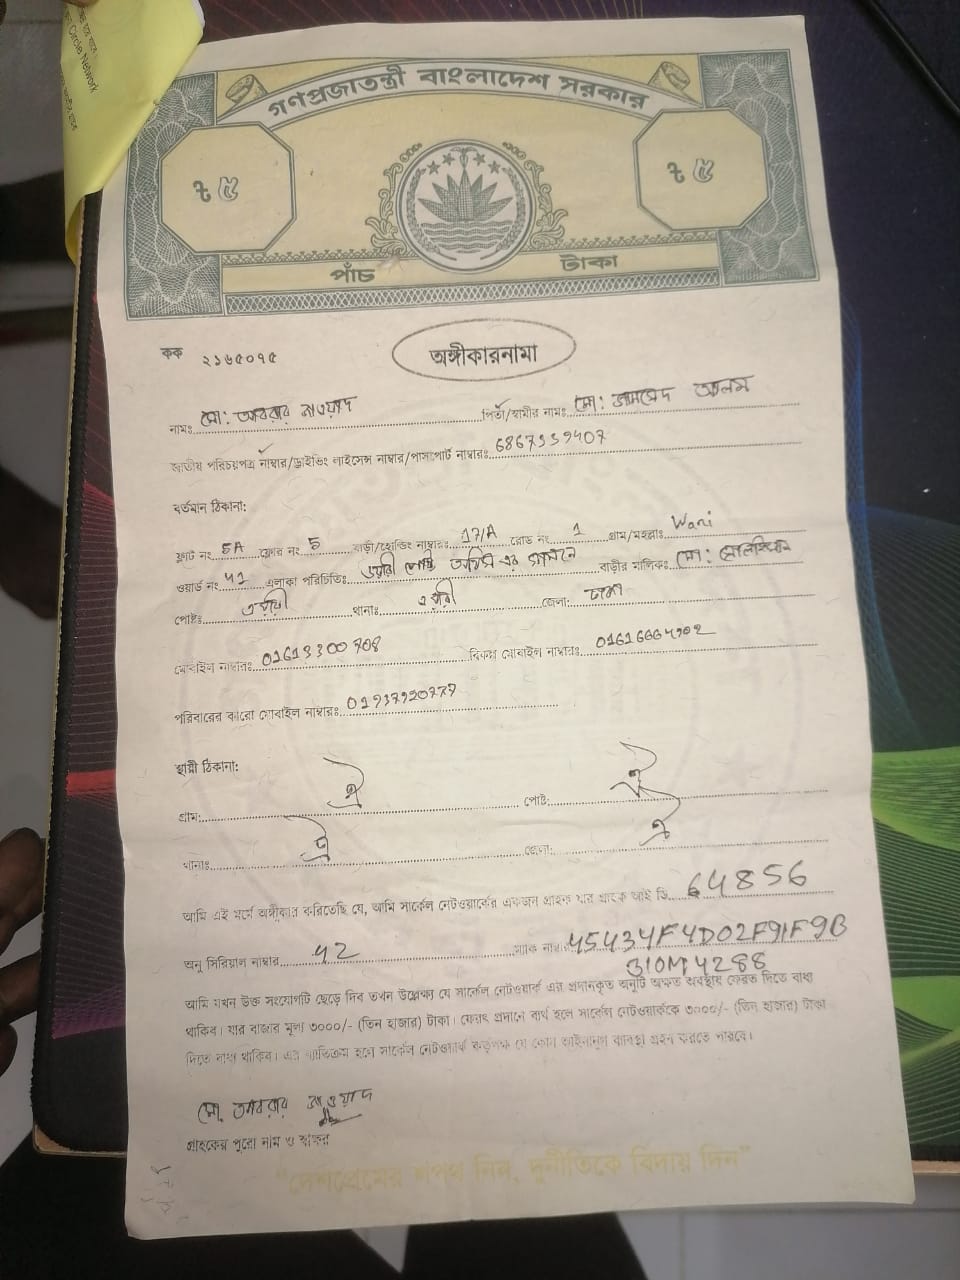 Circle Network
গণপ্রজাতন্ত্রী বাংলাদেশ সরকার
৳ ৫ ৳ ৫
পাঁচ টাকা
কক ২১৬৫০৭৫
অঙ্গীকারনামা
নামঃ মো: আবরার নাওয়াদ পিতা/স্বামীর নামঃ মো: জামসেদ আলম
জাতীয় পরিচয়পত্র নাম্বার/ড্রাইভিং লাইসেন্স নাম্বার/পাসপোর্ট নাম্বারঃ 6867339407
বর্তমান ঠিকানা:
ফ্ল্যাট নং 5A ফ্লোর নং 5 বাড়ী/হোল্ডিং নাম্বারঃ 17/A রোড নং 1 গ্রাম/মহল্লাঃ Wari
ওয়ার্ড নং 41 এলাকা পরিচিতিঃ ওয়ারী পোষ্ট অফিস এর সামনে বাড়ীর মালিকঃ মো:
পোষ্টঃ ওয়ারী থানাঃ ওয়ারী জেলা: ঢাকা
মোবাইল নাম্বারঃ 01613300708 বিকল্প মোবাইল নাম্বারঃ
পরিবারের কারো মোবাইল নাম্বারঃ
স্থায়ী ঠিকানা:
গ্রাম: ঐ পোষ্ট: ঐ
থানাঃ ঐ জেলা: ঐ
আমি এই মর্মে অঙ্গীকার করিতেছি যে, আমি সার্কেল নেটওয়ার্কের একজন গ্রাহক যার গ্রাহক আই ডি 64856
অনু সিরিয়াল নাম্বার 42 ম্যাক নাম্বার 45434F4D02F91F9B
310M4288
আমি যখন উক্ত সংযোগটি ছেড়ে দিব তখন উল্লেখ্য যে সার্কেল নেটওয়ার্ক এর প্রদানকৃত অনুটি অক্ষত অবস্থায় ফেরত দিতে বাধ্য
থাকিব। যার বাজার মূল্য ৩০০০/- (তিন হাজার) টাকা। ফেরৎ প্রদানে ব্যর্থ হলে সার্কেল নেটওয়ার্ককে ৩০০০/- (তিন হাজার) টাকা
দিতে বাধ্য থাকিব। এর ব্যতিক্রম হলে সার্কেল নেটওয়ার্ক কর্তৃপক্ষ যে কোন আইনানুগ ব্যবস্থা গ্রহন করতে পারবে।
মো: আবরার নাওয়াদ
গ্রাহকের পুরো নাম ও স্বাক্ষর
“দেশপ্রেমের শপথ নিন, দুর্নীতিকে বিদায় দিন”